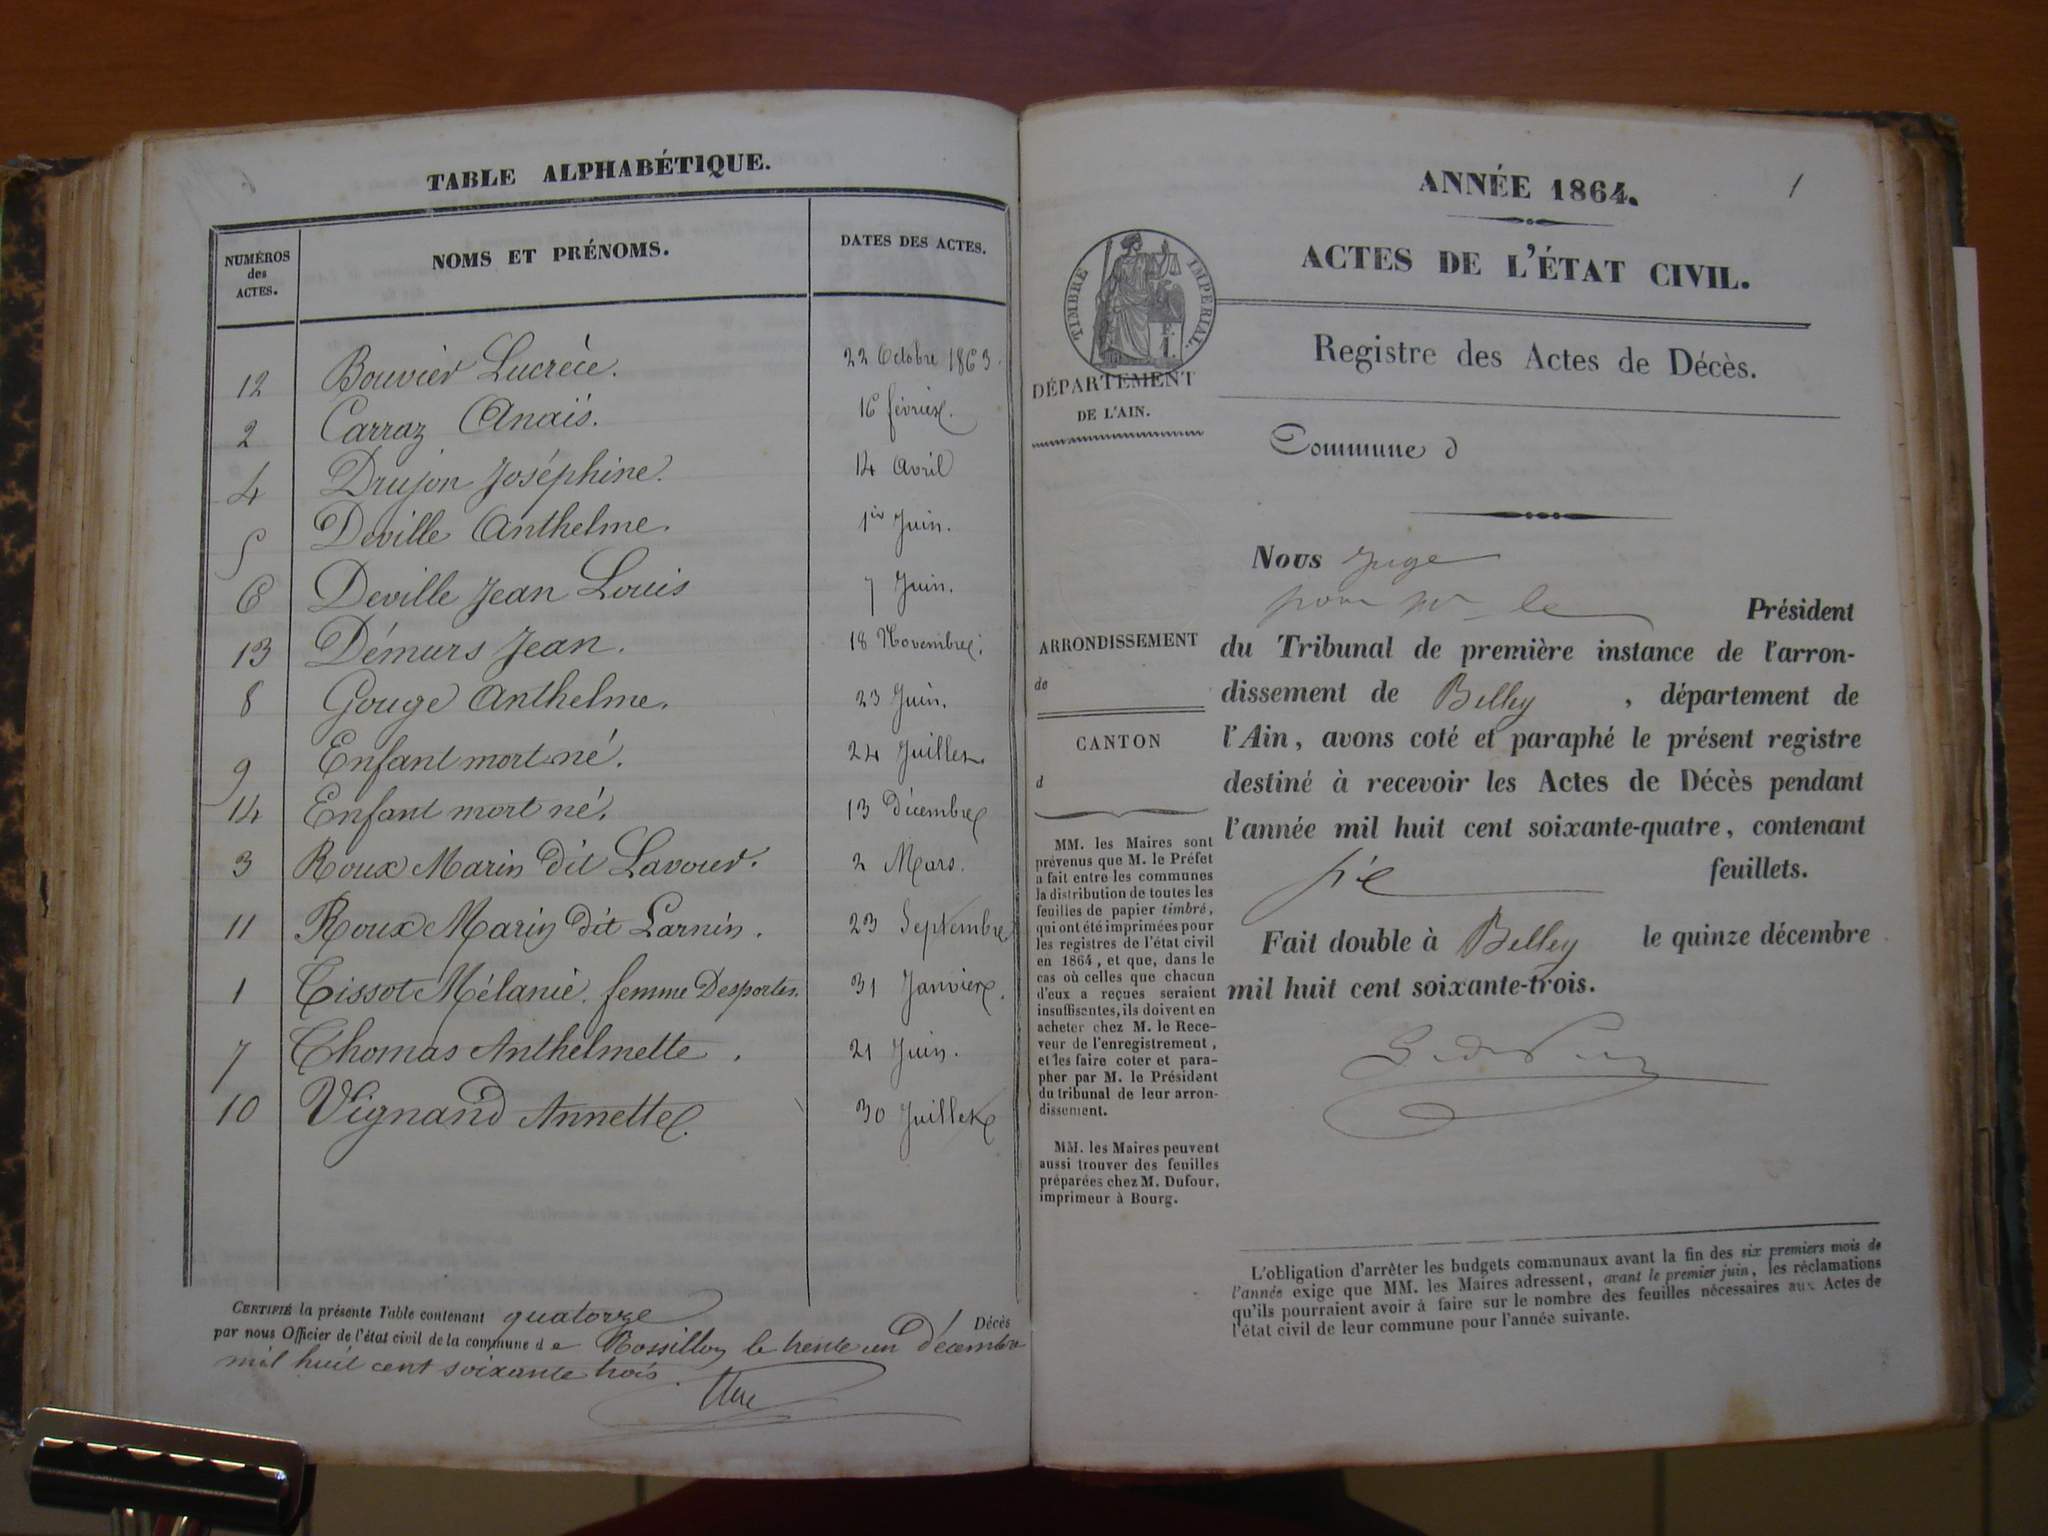 TABLE ALPHABÉTIQUE.
NUMÉROS des ACTES. NOMS ET PRÉNOMS. DATES DES ACTES.
12 Bouvier Lucréce. 22 Octobre 1863.
2 Carraz Anaïs. 16 février.
4 Drujon Joséphine. 14 Avril
5 Deville Anthelme. 1er Juin.
6 Deville Jean Louis 7 Juin.
13 Démurs Jean. 18 Novembre.
8 Gouge Anthelme. 23 Juin.
9 Enfant mort né. 24 Juillet.
14 Enfant mort né. 13 décembre
3 Roux Marin dit Lavour. 2 Mars.
11 Roux Marin dit Larnin. 23 Septembre
1 Tissot Mélanie. femme Desportes. 31 Janvier.
7 Thomas Anthelmette. 21 Juin.
10 Vignand Annette. 30 Juillet
CERTIFIÉ la présente Table contenant quatorze Décès
par nous Officier de l'état civil de la commune de Rossillon le trente un décembre
mil huit cent soixante trois.
1
ANNÉE 1864.
ACTES DE L'ÉTAT CIVIL.
TIMBRE IMPÉRIAL.
Registre des Actes de Décès.
DÉPARTEMENT
DE L'AIN.
Commune d
ARRONDISSEMENT
de
CANTON
d
MM. les Maires sont
prévenus que M. le Préfet
a fait entre les communes
la distribution de toutes les
feuilles de papier timbré,
qui ont été imprimées pour
les registres de l'état civil
en 1864, et que, dans le
cas où celles que chacun
d'eux a reçues seraient
insuffisantes, ils doivent en
acheter chez M. le Rece-
veur de l'enregistrement,
et les faire coter et para-
pher par M. le Président
du tribunal de leur arron-
dissement.
MM. les Maires peuvent
aussi trouver des feuilles
préparées chez M. Dufour,
imprimeur à Bourg.
Nous Juge
pour Mr le Président
du Tribunal de première instance de l'arron-
dissement de Belley, département de
l'Ain, avons coté et paraphé le présent registre
destiné à recevoir les Actes de Décès pendant
l'année mil huit cent soixante-quatre, contenant
feuillets.
Fait double à Belley le quinze décembre
mil huit cent soixante-trois.
L'obligation d'arrêter les budgets communaux avant la fin des six premiers mois de
l'année exige que MM. les Maires adressent, avant le premier juin, les réclamations
qu'ils pourraient avoir à faire sur le nombre des feuilles nécessaires aux Actes de
l'état civil de leur commune pour l'année suivante.